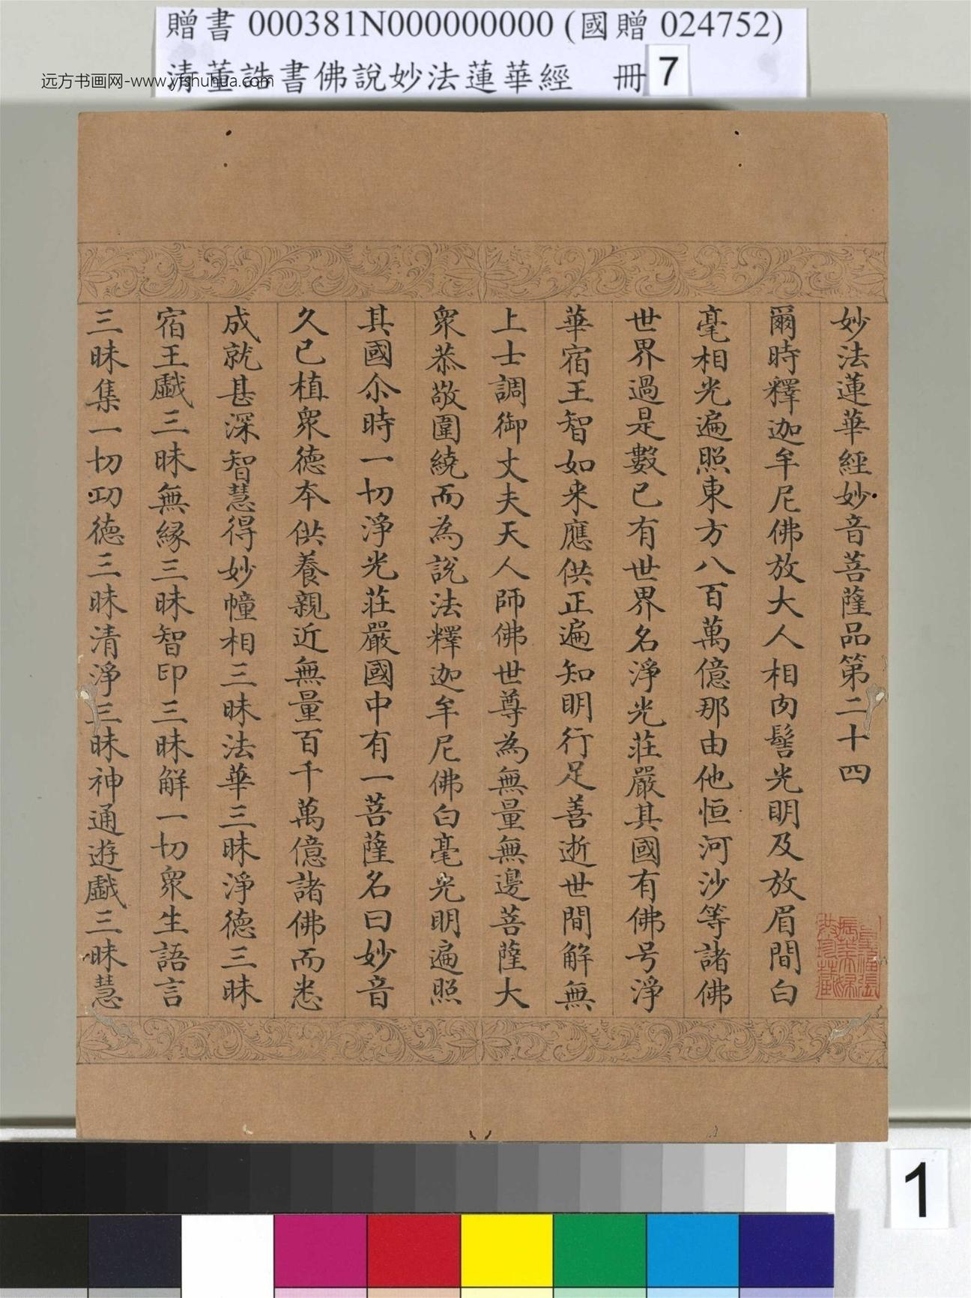 贈書 000381N000000000 (國贈 024752)
清董誥書佛說妙法蓮華經 冊 7
远方书画网-www.yfshuhua.com
妙法蓮華經妙音菩薩品第二十四
爾時釋迦牟尼佛放大人相肉髻光明及放眉間白
毫相光遍照東方八百萬億那由他恒河沙等諸佛
世界過是數已有世界名淨光莊嚴其國有佛号淨
華宿王智如来應供正遍知明行足善逝世間解無
上士調御丈夫天人師佛世尊為無量無邊菩薩大
衆恭敬圍繞而為說法釋迦牟尼佛白毫光明遍照
其國尒時一切淨光莊嚴國中有一菩薩名曰妙音
久已植衆德本供養親近無量百千萬億諸佛而悉
成就甚深智慧得妙幢相三昧法華三昧淨德三昧
宿王戲三昧無緣三昧智印三昧解一切衆生語言
三昧集一切功德三昧清淨三昧神通遊戲三昧慧
1